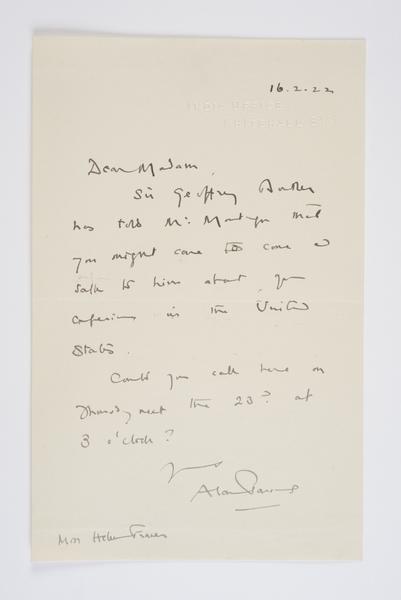 16.2.22
INDIA OFFICE,
WHITEHALL, S.W.1
Dear Madam,
Sir Geoffrey Butler
has told Mr. Montagu that
you might care to come &
talk to him about your
experiences in the United
States.
Could you call here on
Thursday next the 23rd at
3 o'clock?
Yours
Alan Parsons
Miss Helen Fraser